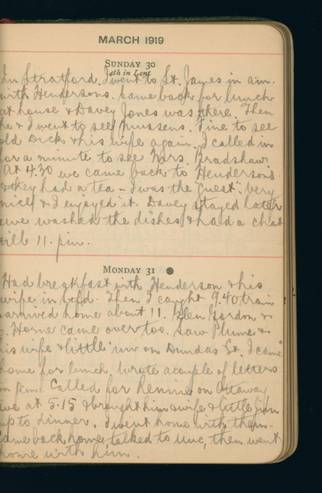 MARCH 1919
SUNDAY 30
4th in Lent
In Stratford. I went to St. James in a.m.
with Hendersons. Came back for lunch
at house & Davey Jones was there. Then
he & I went to see Mussens. Fine to see
old Dick & his wife again. I called in
for a minute to see Mrs. Bradshaw.
At 4.30 we came back to Hendersons
& they had a tea - I was the "guest". Very
nice & I enjoyed it. Davey stayed later
& we washed the dishes & had a chat
till 11. p.m.
MONDAY 31
Had breakfast with Henderson & his
wife in Then I caught 9.40 train
& arrived home about 11. Gordon &
Horne came over too. Saw Plume &
his wife & little on Dundas St. I came
home for lunch, wrote a couple of letters
Called for Rennie on Ottaway
Ave at 5.15 & brought him & wife & little
up to dinner. I went home with them.
Came back home, talked to then went
home with him.